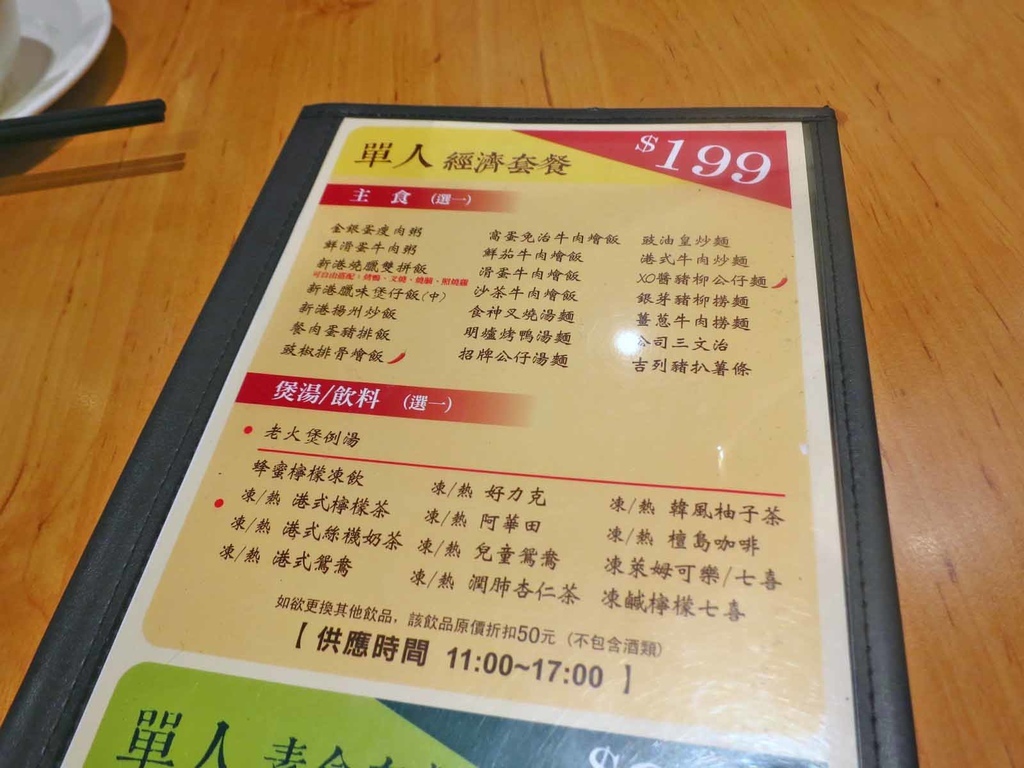 單人 經濟套餐 $199
主 食 (選一)
金銀蛋瘦肉粥
鮮滑蛋牛肉粥
新港燒臘雙拼飯
可自由搭配:烤鴨、叉燒、燒腩、照燒雞
新港臘味煲仔飯(中)
新港揚州炒飯
餐肉蛋豬排飯
豉椒排骨燴飯
窩蛋免治牛肉燴飯
鮮茄牛肉燴飯
滑蛋牛肉燴飯
沙茶牛肉燴飯
食神叉燒湯麵
明爐烤鴨湯麵
招牌公仔湯麵
豉油皇炒麵
港式牛肉炒麵
XO醬豬柳公仔麵
銀芽豬柳撈麵
薑蔥牛肉撈麵
公司三文治
吉列豬扒薯條
煲湯/飲料 (選一)
老火煲例湯
蜂蜜檸檬凍飲
凍/熱 港式檸檬茶
凍/熱 港式絲襪奶茶
凍/熱 港式鴛鴦
凍/熱 好力克
凍/熱 阿華田
凍/熱 兒童鴛鴦
凍/熱 潤肺杏仁茶
凍/熱 韓風柚子茶
凍/熱 檀島咖啡
凍萊姆可樂/七喜
凍鹹檸檬七喜
如欲更換其他飲品,該飲品原價折扣50元 (不包含酒類)
【 供應時間 11:00~17:00 】
單人 素食套餐 $